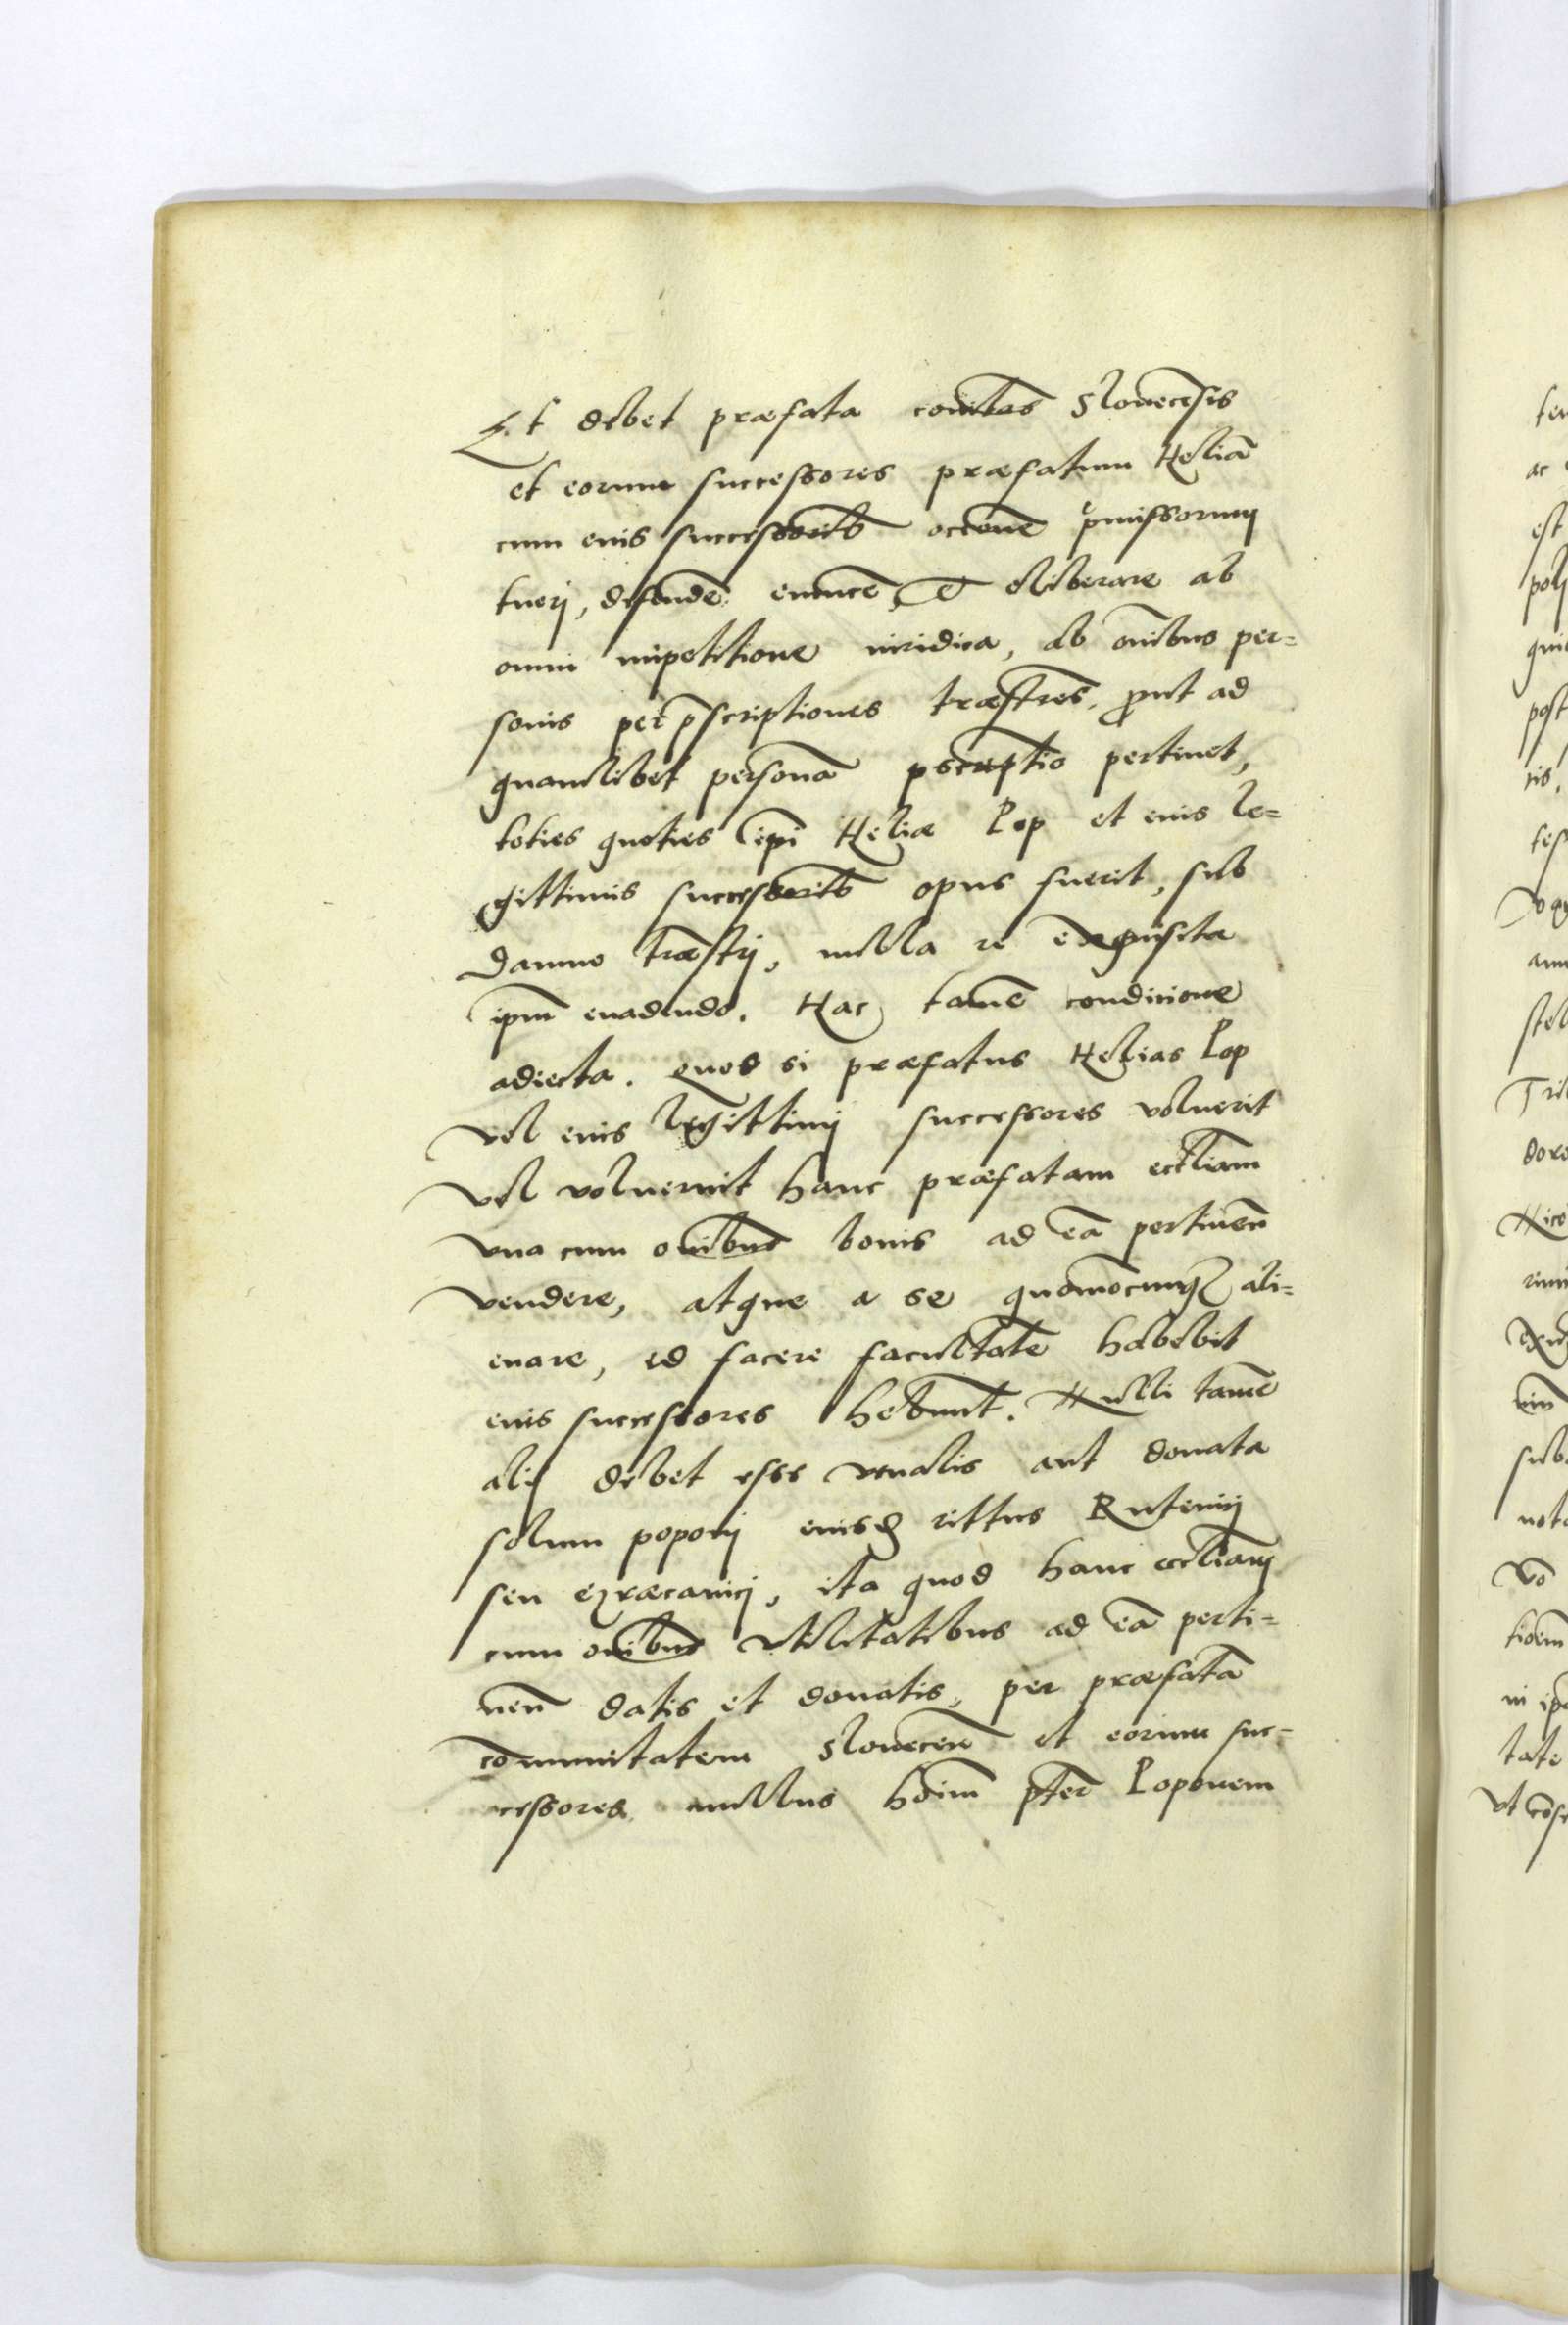 Et debet præfata com̄itas Slouecēsis
et eorum successores præfatum Heliā
cum eius successorib occōne p̄missorum
tueri, defendē. euincē, et eliberare ab
omni impetitione iuridica, ab om̄ibus per=
sonis per p̄scriptiones træstres, prout ad
quamlibet personā pscriptio pertinet,
toties quoties ip̄i Heliæ Pop et eius le=
gittimis successorib opus fuerit, sub
damno træstrj, nulla re exquisita
ip̄m euadendo. Hac tamē condicione
adiecta. Quod si præfatus Helias Pop
vel eius legittimj successores voluerit
vel voluerint hanc præfatam eccl̄iam
vna cum om̄ibus bonis ad eā pertineñ
vendere, atque a se quomōcunq ali=
enare, id facere facultatē habebit
eius successores hēbunt. Nulli tamē
alij debet esse venalis aut donata
solum poponj eiusd rittus Rutenij
seu græcanicj, ita quod hanc eccl̄iam
cum om̄ibus vtilitatibus ad eā perti=
neñ datis et donatis, per præfatā
com̄unitatem Sloueceñ et eorum suc=
cessores nullus hōim p̄ter Poponem
ter
ac
est
post
Tri
dore
sub
not
vō
tate